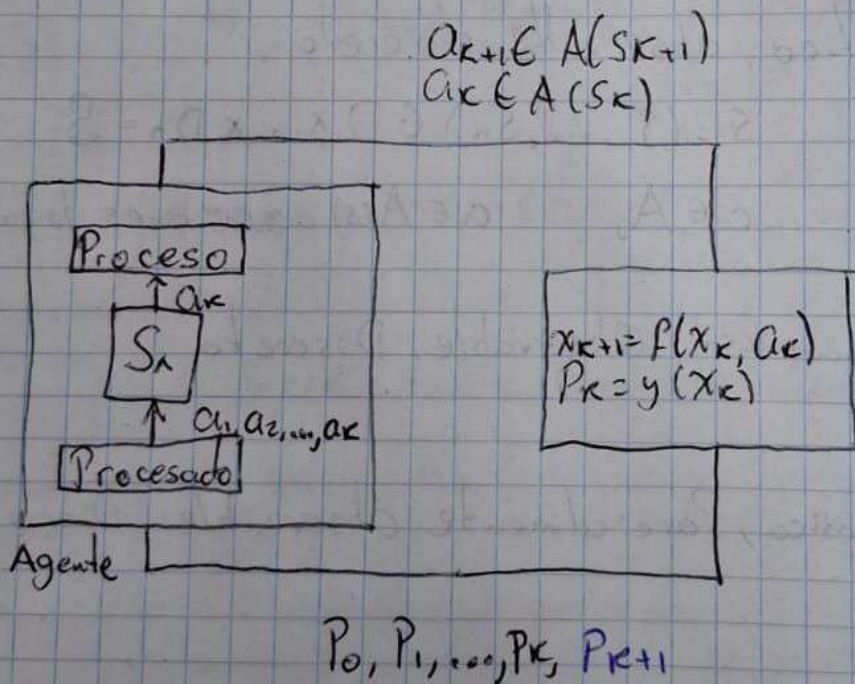 aₖ₊₁ ∈ A(Sₖ₊₁)
aₖ ∈ A(Sₖ)
Proceso
aₖ
Sₖ
a₁, a₂, ..., aₖ
Procesado
Agente
xₖ₊₁ = f(xₖ, aₖ)
Pₖ = y(xₖ)
P₀, P₁, ..., Pₖ, Pₖ₊₁